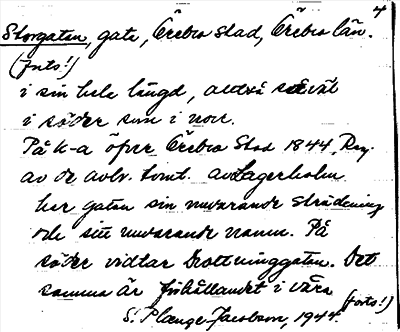 4
Storgatan, gata, Örebro stad, Örebro län.
(forts!)
i sin hela längd, alltså såväl
i söder som i norr.
På k-a öfver Örebro Stad 1844, Rey.
av de avlv. tomt. av Lagerholm
har gatan sin nuvarande sträckning
och sitt nuvarande namn. På
söder vidtar Drottninggatan. Det
samma är förhållandet i våra
(forts!)
S. Plænge Jacobson, 1944.